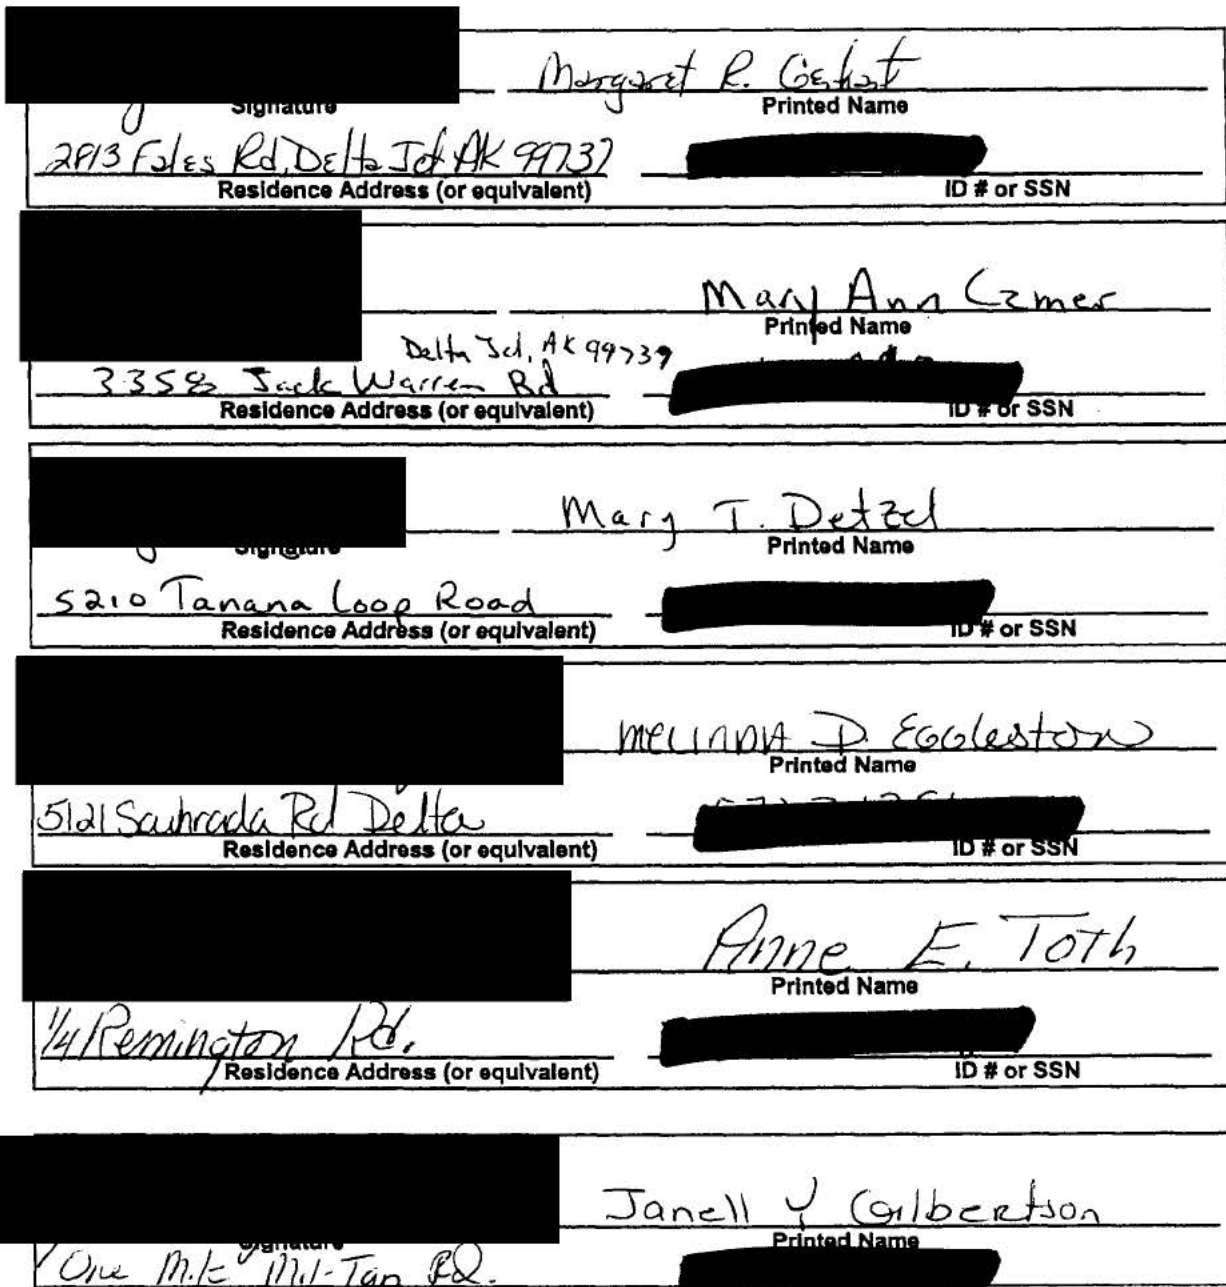 Margaret R. Gerhart
Signature Printed Name
2913 Fales Rd, Delta Jct AK 99737
Residence Address (or equivalent) ID # or SSN
Mary Ann Czmer
Printed Name
Delta Jct, AK 99739
3358 Jack Warren Rd
Residence Address (or equivalent) ID # or SSN
Mary T. Detzel
Signature Printed Name
5210 Tanana Loop Road
Residence Address (or equivalent) ID # or SSN
MELINDA D. Eggleston
Printed Name
5121 Rd Delta
Residence Address (or equivalent) ID # or SSN
Anne E. Toth
Printed Name
1/4 Remington Rd.
Residence Address (or equivalent) ID # or SSN
Janell Y Gilbertson
Signature Printed Name
One Mile Mil-Tan Rd.